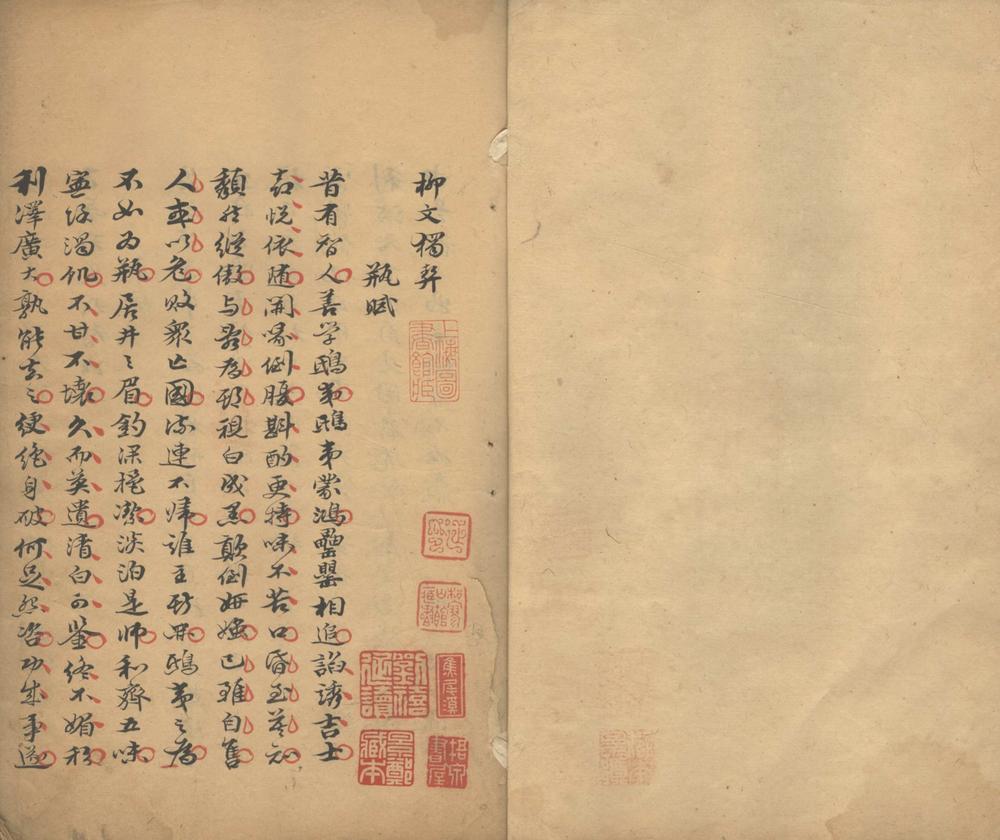 柳文獨
瓶賦
昔有智人善學鴟夷鴟夷蒙鴻罍罌相追諂誘吉士
喜悅依随開喙倒腹斟酌更持味不苦口昏至莫知
頹然縱傲与亂為期視白成黑顛倒妍媸己雖自售
人或以危敗眾亡國流連不歸誰主斯罪鴟夷之為
不如為瓶居井之眉鈎深挹潔淡泊是師和齊五味
寧除渴飢不甘不壞久而莫遺清白可鑒終不媚私
利澤廣大孰能去之綆絕身破何足怨咨功成事遂
上海圖書館藏
劉禧延讀
景鄭藏本